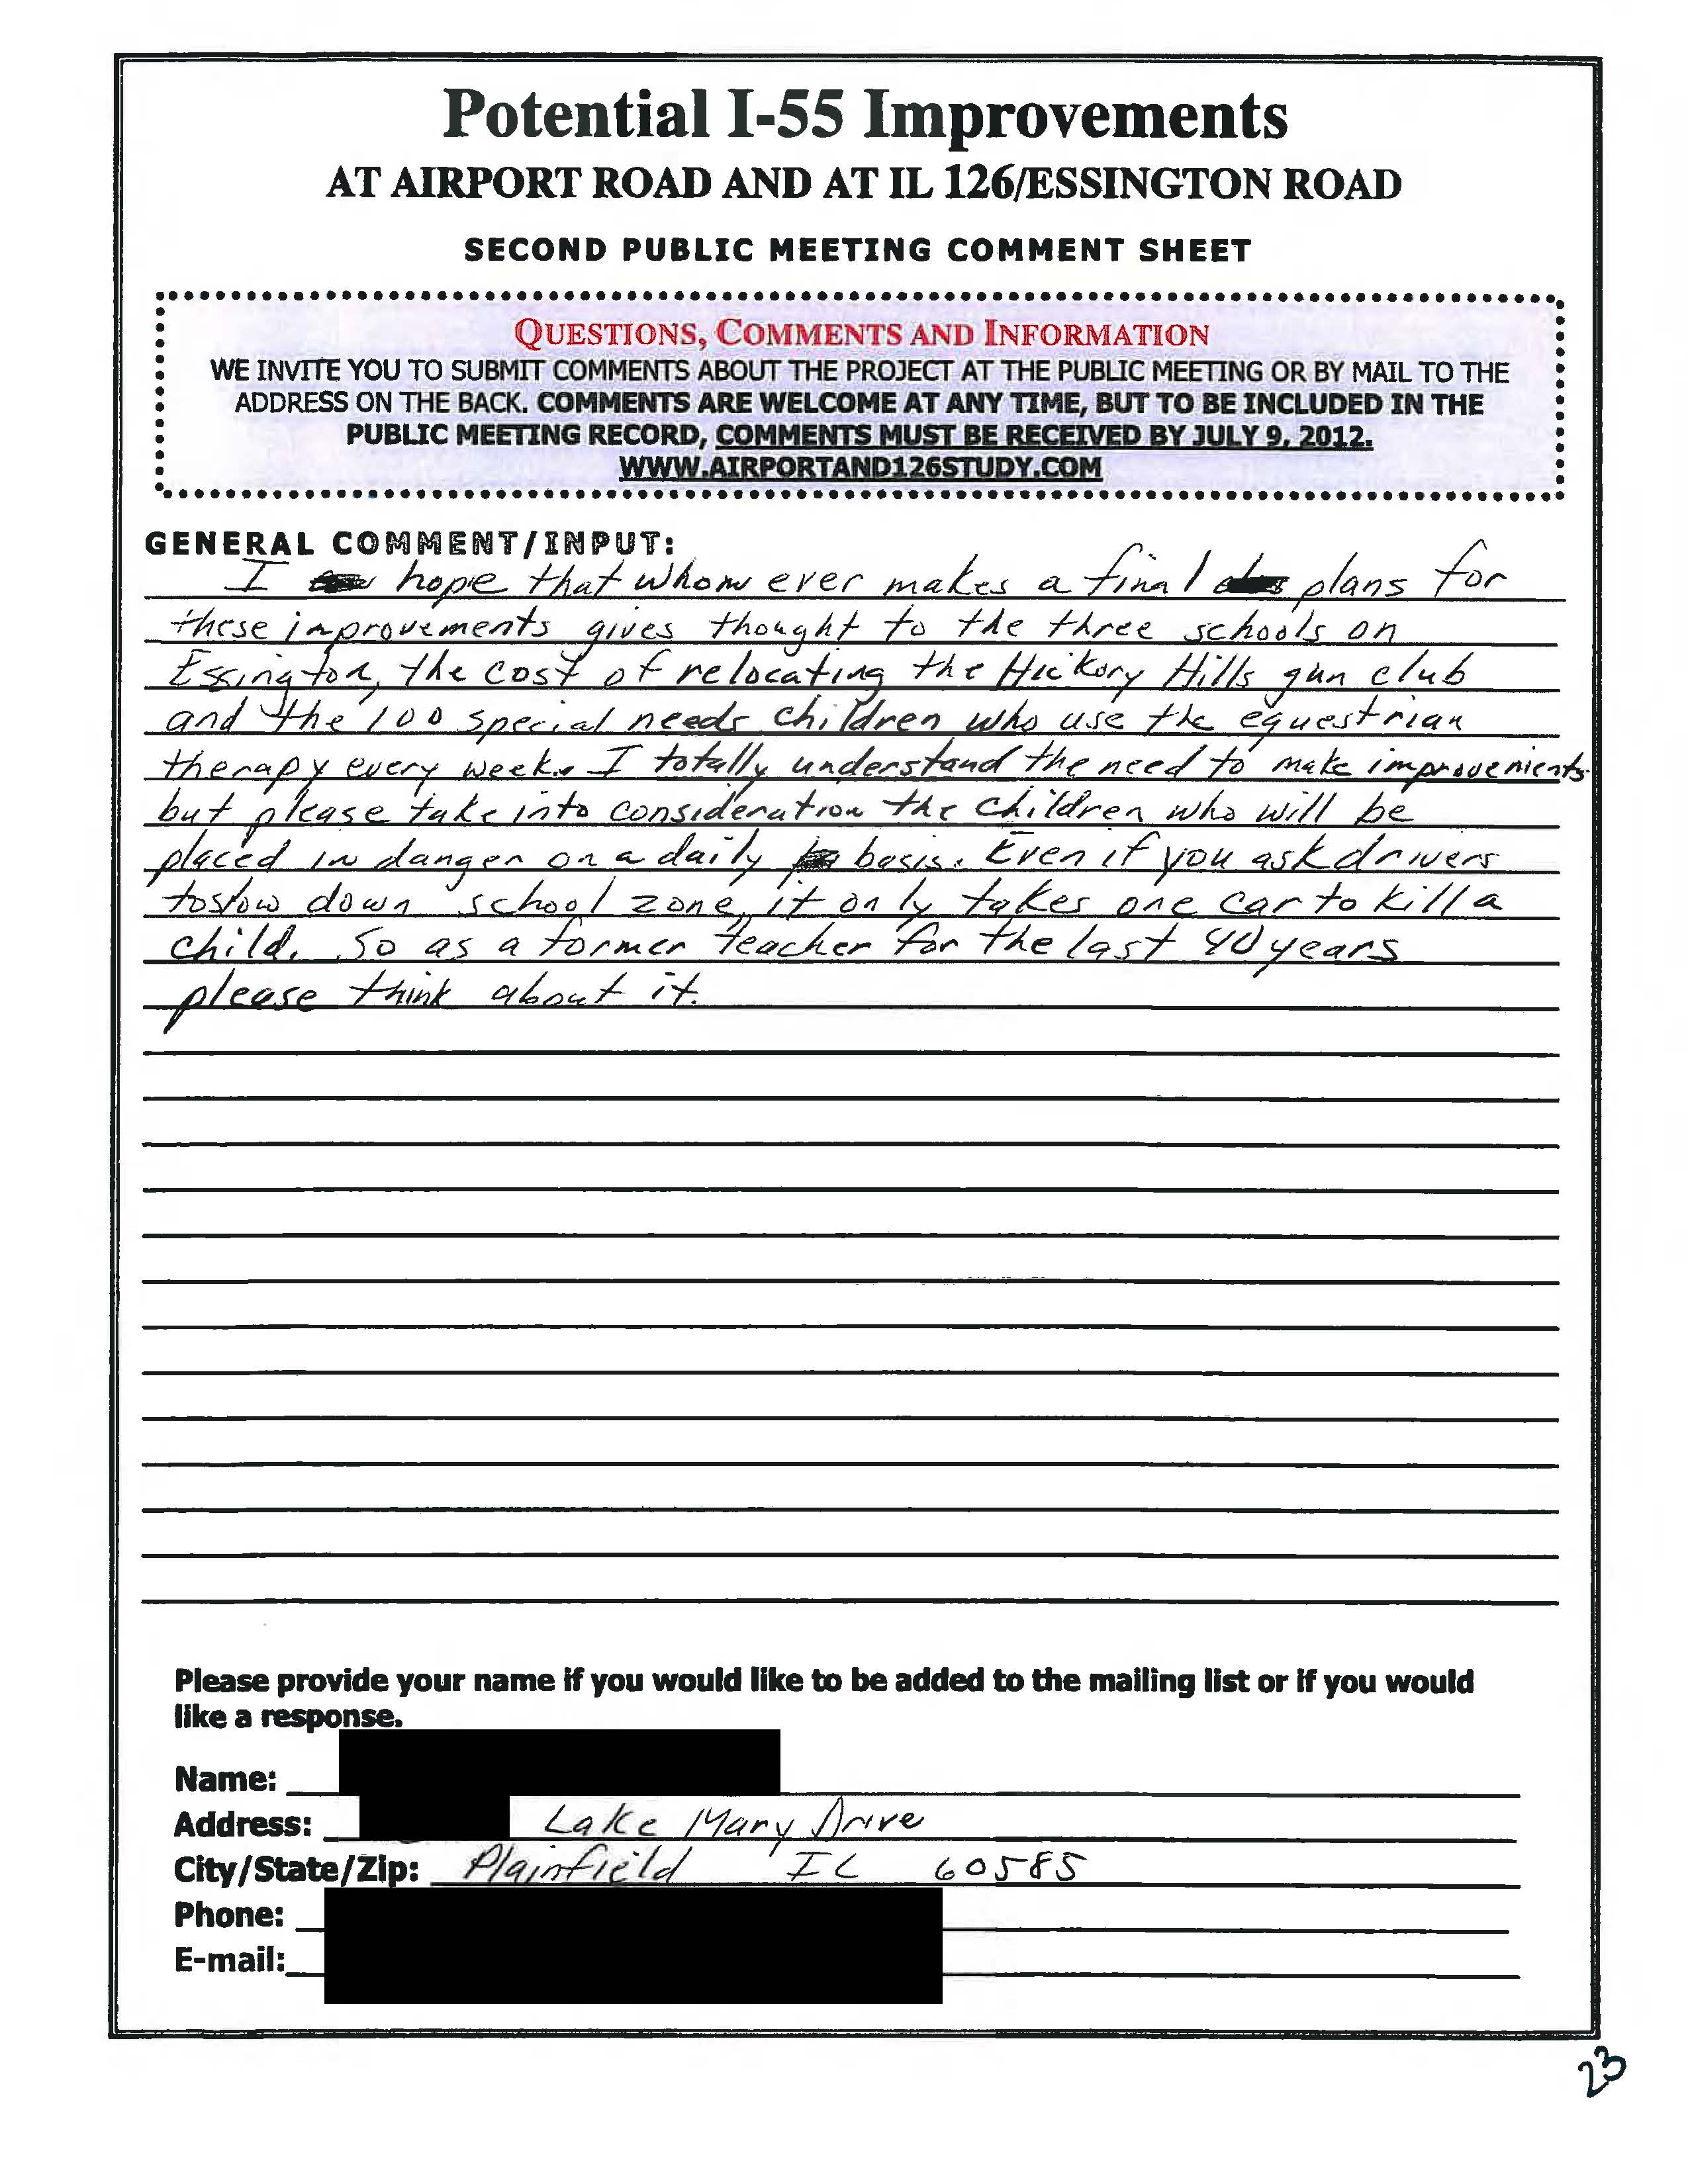 Potential I-55 Improvements
AT AIRPORT ROAD AND AT IL 126/ESSINGTON ROAD
SECOND PUBLIC MEETING COMMENT SHEET
QUESTIONS, COMMENTS AND INFORMATION
WE INVITE YOU TO SUBMIT COMMENTS ABOUT THE PROJECT AT THE PUBLIC MEETING OR BY MAIL TO THE
ADDRESS ON THE BACK. COMMENTS ARE WELCOME AT ANY TIME, BUT TO BE INCLUDED IN THE
PUBLIC MEETING RECORD, COMMENTS MUST BE RECEIVED BY JULY 9, 2012.
WWW.AIRPORTAND126STUDY.COM
GENERAL COMMENT/INPUT:
I hope that whom ever makes a final plans for
these improvements gives thought to the three schools on
Essington, the cost of relocating the Hickory Hills gun club
and the 100 special needs children who use the equestrian
therapy every week. I totally understand the need to make improvements
but please take into consideration the children who will be
placed in danger on a daily basis. Even if you ask drivers
to slow down school zone, it only takes one car to kill a
child. So as a former teacher for the last 40 years
please think about it.
Please provide your name if you would like to be added to the mailing list or if you would
like a response.
Name:
Address: Lake Mary Drive
City/State/Zip: Plainfield IL 60585
Phone:
E-mail:
23